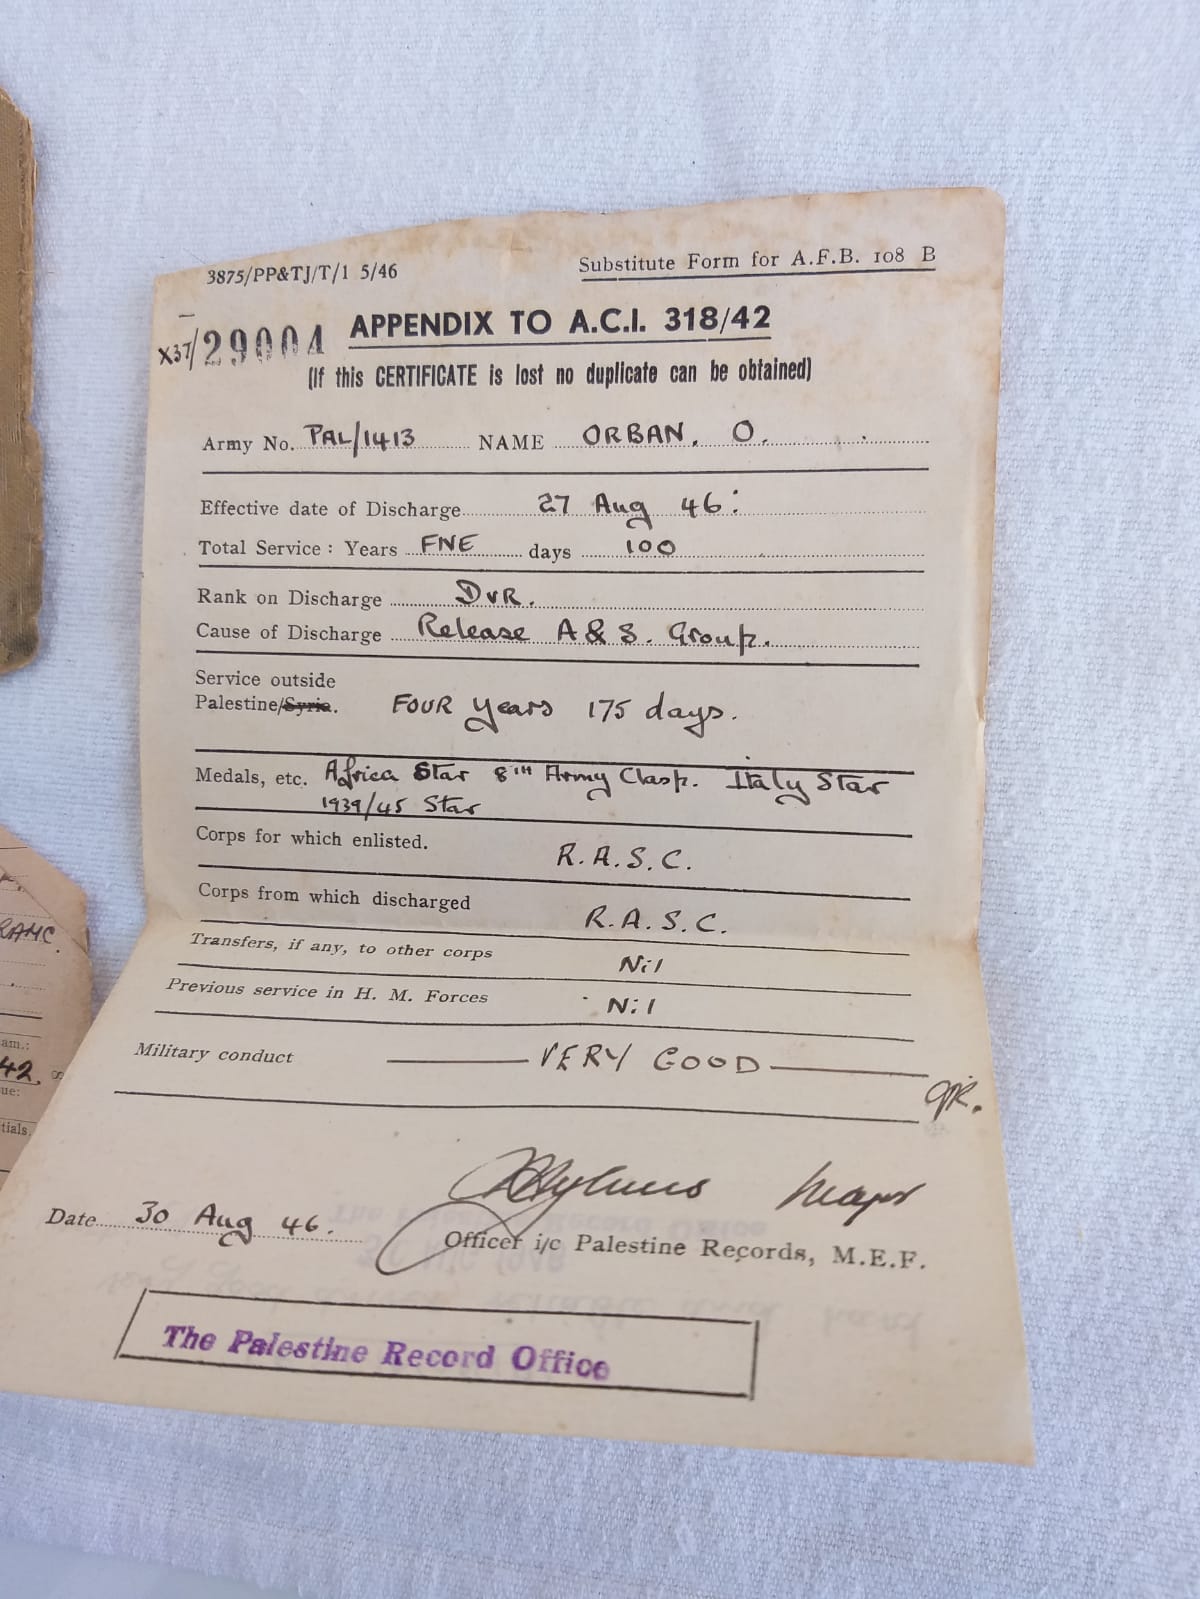 3875/PP&TJ/T/1 5/46
Substitute Form for A.F.B. 108 B
X37/29004 APPENDIX TO A.C.I. 318/42
(If this CERTIFICATE is lost no duplicate can be obtained)
Army No. PAL/1413 NAME ORBAN. O.
Effective date of Discharge 27 Aug 46:
Total Service: Years FNE days 100
Rank on Discharge DVR.
Cause of Discharge Release A & S. Group.
Service outside
Palestine/Syria. FOUR years 175 days.
Medals, etc. Africa Star 8TH Army Clasp. Italy Star
1939/45 Star
Corps for which enlisted. R.A.S.C.
Corps from which discharged R.A.S.C.
Transfers, if any, to other corps Nil
Previous service in H. M. Forces Nil
Military conduct VERY GOOD
Major
Date 30 Aug 46.
Officer i/c Palestine Records, M.E.F.
The Palestine Record Office
RAMC.
am.:
42.
ue:
tials.